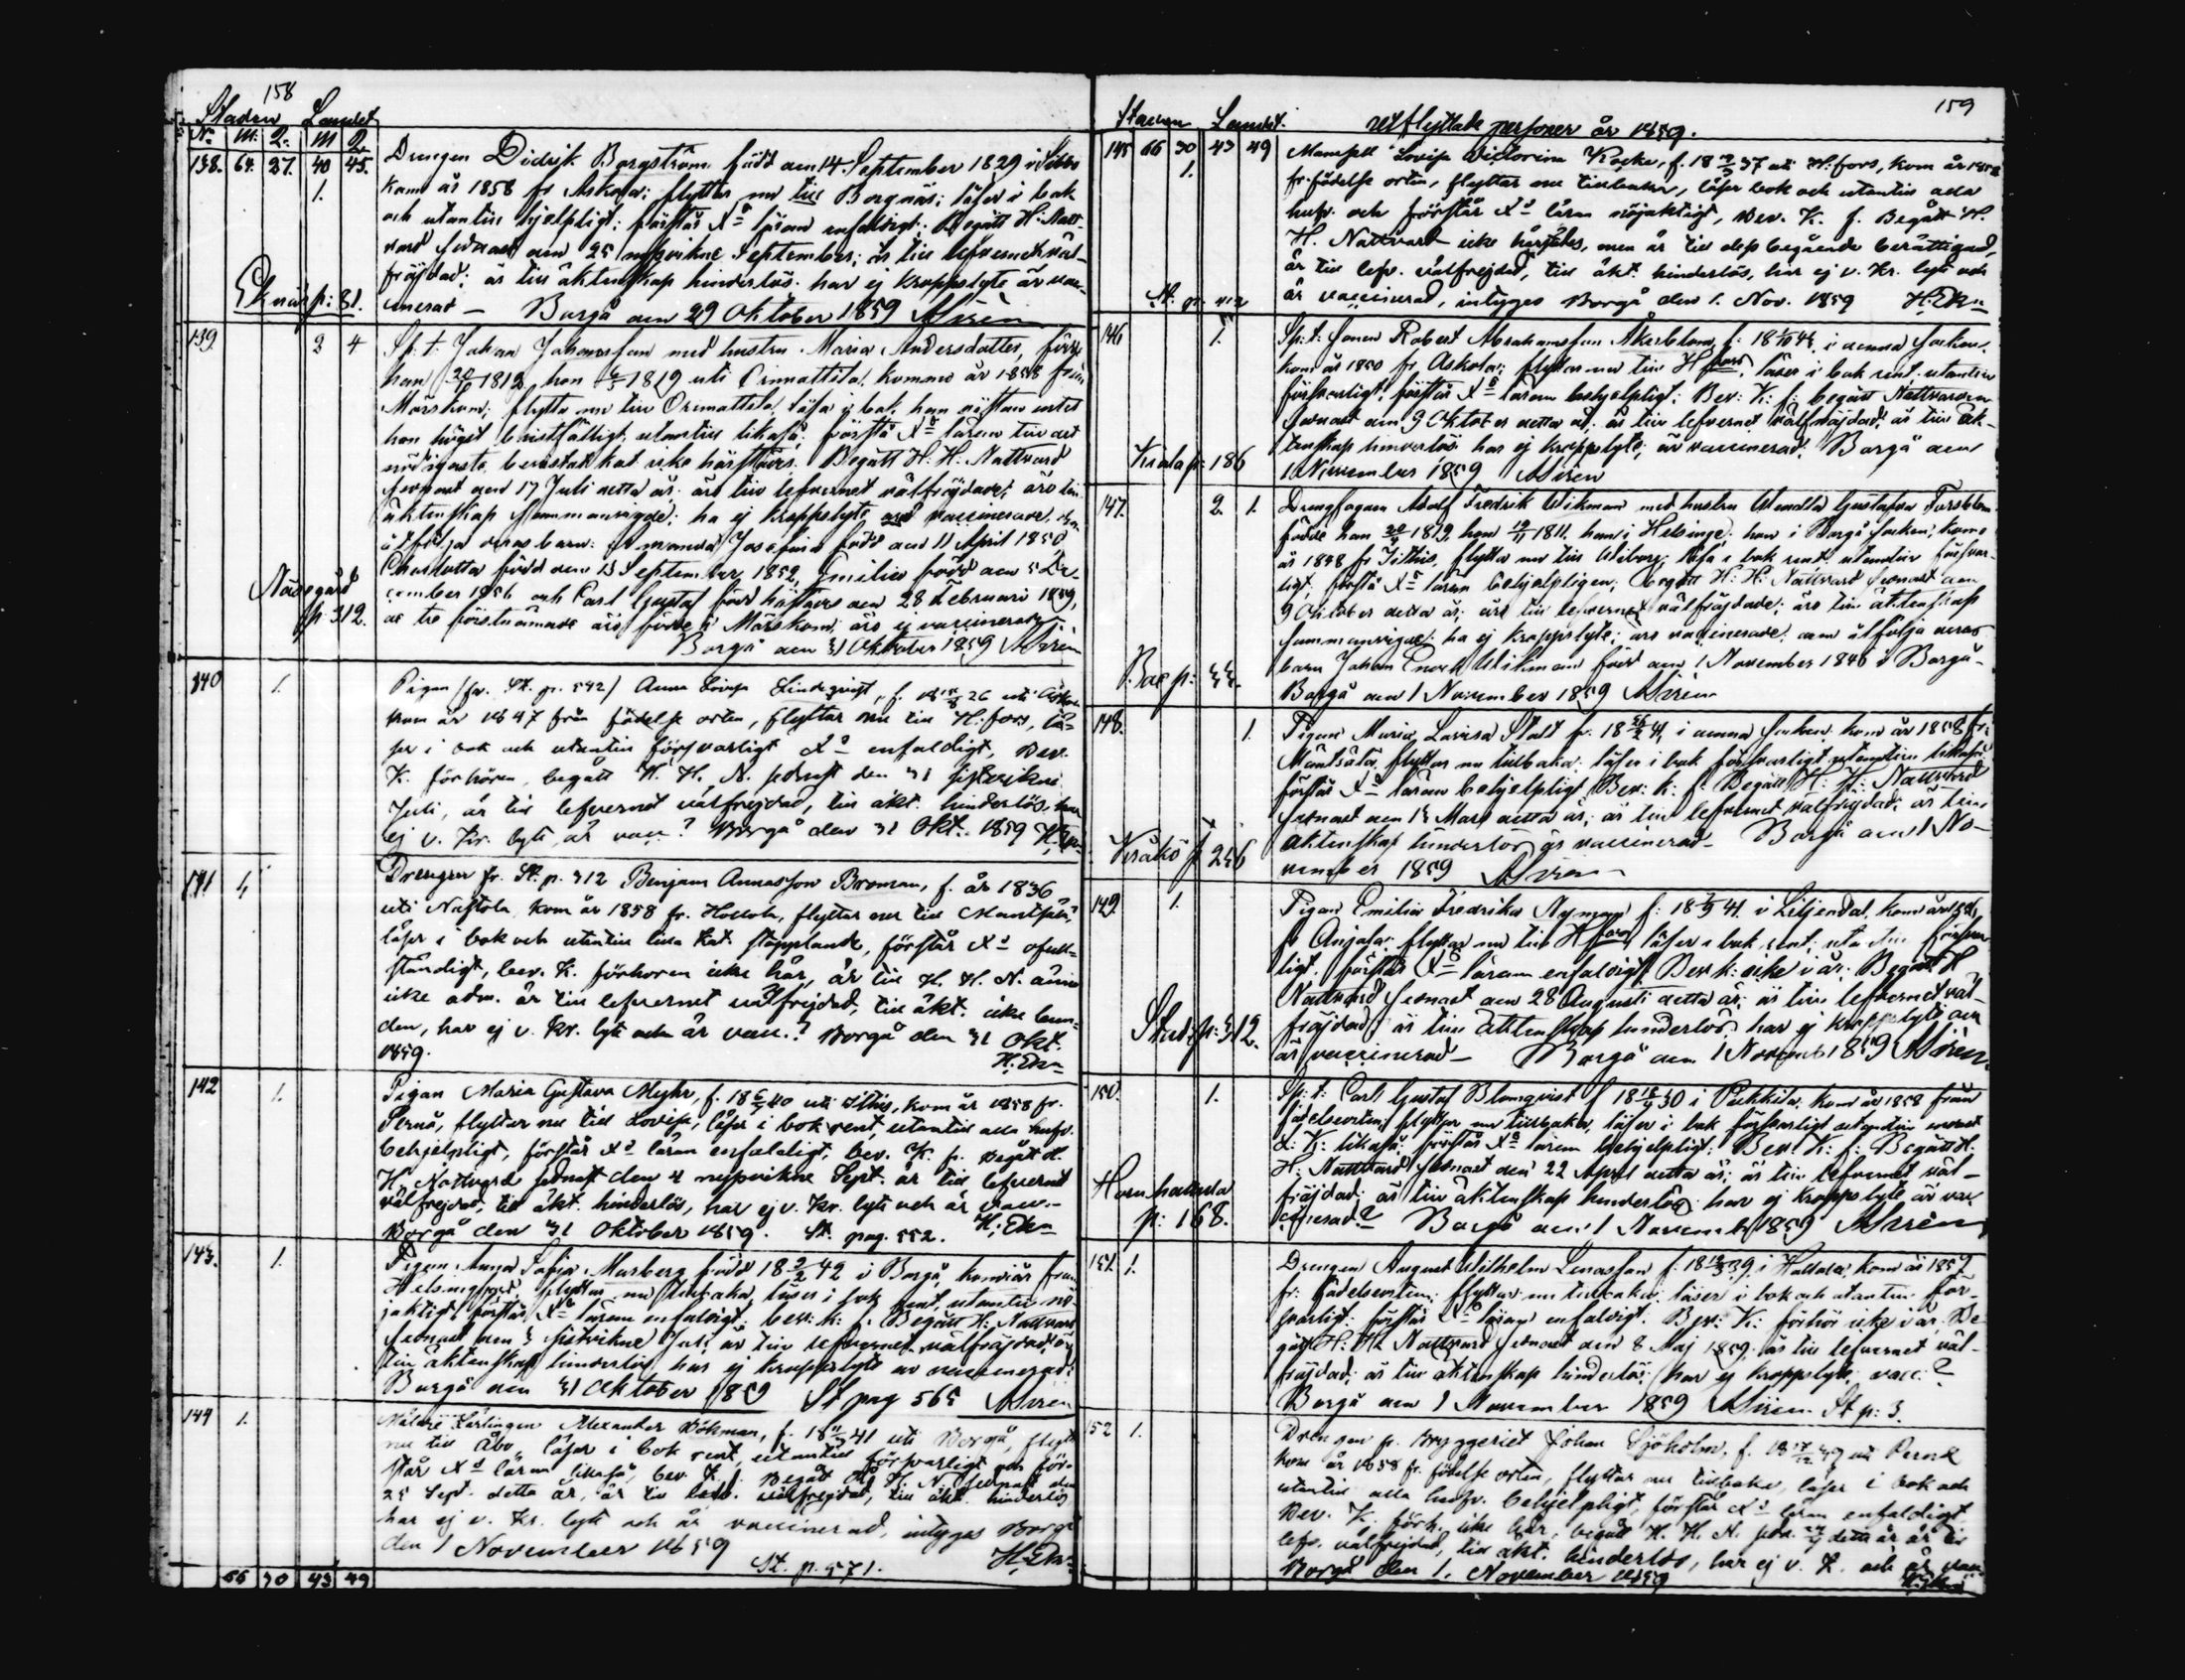 158
Staden Landet
No M. Q. M Q
138. 64. 27. 40 45. Drengen Didrik Borgström född den 14 September 1829 i Sibbo
1. kom år 1858 fr Askola; flyttar nu till Borgnäs; läser i bok
och utantill hjelpligt; förstår Xs läran enfaldigt; Begått H. Natt-
vard sednast den 25 nästvikne September; är till lefvernet väl-
fräjdad; är till äktenskap hinderlös; har ej kroppslyte är vac-
Eknäs p: 81. cinerad — Borgå den 29 Oktober 1859 Alrén
139 3 4 Sp: t: Johan Johansson med hustru Maria Andersdotter, födde
han 1812, hon 1819 uti Orimattila, kommo år 1858 från
Mörskom; flytta nu till Orimattila, läsa i bok, han
hon högst bristfälligt, utantill likaså; förstå Xs läran till det
nödigaste, icke härstädes. Begått H. H. Nattvard
sednast den 17 Juli detta år; äro till lefvernet välfräjdade; äro till
äktenskap sammanvigde; ha ej kroppslyte, äro vaccinerade,
åtfölja deras barn: Amanda Josefina född den 11 April 1850,
Charlotta född den 13 September 1852, Emilia född den 5 De-
Näsegård cember 1856 och Carl Gustaf född härstädes den 28 Februari 1859,
p: 312. de tre förstnämnde äro födde i Mörskom; äro ej vaccinerade.
Borgå den 31 Oktober 1859 Alrén
140 1. Pigan (fr. St. p. 542) Anna Lovisa Lindqvist, f. 18 26 uti
kom år 1847 från födelse orten, flyttar nu till H:fors, lä-
ser i bok och utantill försvarligt Xs enfaldigt, bev.
K. förhören, begått H. H. N. sednast den 31 sistvikne
Juli, är till lefvernet välfrejdad, till äkt. hinderlös, har
ej v. Kr. lyte, är vacc? Borgå den 31 Okt. 1859 H. Ekn
141 1. Drengen fr. St. p. 312 Benjam Annasson Broman, f. år 1836
uti Nastola, kom år 1858 fr. Hollola, flyttar nu till Mäntsälä,
läser i bok och utantill lilla Kat. stapplande, förstår Xs ofull-
ständigt, bev. K. förhören icke här, är till H. H. N. ännu
icke adm. är till lefvernet välfrejdad, till äkt. icke bun-
den, har ej v. Kr. lyte och är vacc.? Borgå den 31 Okt.
1859. H. Ekn
142 1. Pigan Maria Gustava Myhr, f. 18 40 uti Ithis, kom år 1858 fr.
Pernå, flyttar nu till Lovisa, läser i bok rent, utantill alla hufv.
behjelpligt, förstår Xs läran enfaldigt, bev. K. f. Begått H.
H. Nattvard sednast den 4 nystvikne Sept. är till lefvernet
välfrejdad, till äkt. hinderlös, har ej v. Kr. lyte och är vacc.
Borgå den 31 Oktober 1859. St. pag. 552. H. Ekn
143. 1. Pigan Anna Sofia Marberg född 18 9/2 42 i Borgå, kom i år från
Helsingfors, flyttar nu tillbaka, läser i bok rent, utantill nö-
jaktigt, förstår Xs läran enfaldigt; bev: K: f. Begått H: Nattvard
sednast den 3 sistvikne Juli, är till lefvernet välfräjdad, är
till äktenskap hinderlös, har ej kroppslyte är vaccinerad:
Borgå den 31 Oktober 1859 St pag 565 Alrén
144 1. Målare Lärlingen Alexander Bökman, f. 18 41 uti Borgå, flytt.
nu till Åbo, läser i bok rent, utantill försvarligt och för-
står Xs läran likaså, bev. K. f. Begått H. H. N. sednast den
25 Sept. detta år, är till lefv. välfrejdad, till äkt. hinderlös
har ej v. Kr. lyte och är vaccinerad, intygas Borgå
den 1 November 1859 St. p. 571. H. Ekn
66 30 43 49
159
Staden Landet. Utflyttade personer år 1859.
145 66 30 43 49 Mamsell Lovisa Victorina Kocke, f. 18 37 uti H.fors, kom år 1858
1. fr. födelse orten, flyttar nu tillbaka, läser bok och utantill alla
hufv. och förstår Xs läran nöjaktigt, bev. K. f. Begått H.
H. Nattvard icke härstädes, men är till dess begående berättigad,
är till lefv. välfrejdad, till äkt. hinderlös, har ej v. Kr. lyte och
är vaccinerad, intygas Borgå den 1. Nov. 1859 H. Ekn
146 1. Sp: t: sonen Robert Abrahamsson Åkerblom, f. 18 44, i denna socken,
kom år 1850 fr Askola; flyttar nu till Hfors, läser i bok rent, utantill
försvarligt; förstår Xs läran behjelpligt; Bev: K: f: begått Nattvarden
sednast den 9 Oktober detta år; är till lefvernet välfräjdad; är till äk-
tenskap hinderlös; har ej kroppslyte; är vaccinerad; Borgå den
Kiala p: 186 1 November 1859 Alrén
147. 2. 1. Drengfogden Adolf Fredrik Wikman med hustru Wendla Gustafva Forsblom
födde han 1819, hon 1811, han i Helsinge, hon i Borgå socken; komo
år 1848 fr Ithis, flytta nu till Wiborg, läsa i bok rent, utantill försvar-
ligt, förstå Xs läran behjelpligen; begått H: H: Nattvard sednast den
9 Oktober detta år; äro till lefvernet välfräjdade; äro till äktenskap
sammanvigde; ha ej kroppslyte; äro vaccinerade; dem åtfölja deras
barn Johan Enoch Wikman född den 1 November 1846 i Borgå-
Borgå den 1 November 1859 Alrén
148. 1. Pigan Maria Lovisa Stolt f. 18 26/2 41, i denna socken, kom år 1858 fr:
Mäntsälä, flyttar nu tillbaka; läser i bok försvarligt, utantill likaså;
förstår Xs läran behjelpligt; Bev: K: f: Begått H: H: Nattvard
sednast den 13 Mars detta år; är till lefvernet välfräjdad; är till
Veräkö p 256 äktenskap hinderlös, är vaccinerad — Borgå den 1 No-
vember 1859 Alrén
149. 1. Pigan Emilia Fredrika Nyman f: 18 41. i Liljendal, kom år
fr Anjala; flyttar nu till Hfors; läser i bok rent; utantill försvar-
ligt, förstår Xs läran enfaldigt; Bev K: icke i år; Begått H
Nattvard sednast den 28 Augusti detta år; är till lefvernet väl-
Stad. p: 312. fräjdad; är till äktenskap hinderlös; har ej kroppslyte och
är vaccinerad — Borgå den 1 Novemb 1859 Alrén
150. 1. Sp: t: Carl Gustaf Blomqvist f 18 30 i Pukkila, kom år 1858 från
födelseorten; flyttar nu tillbaka, läser i bok försvarligt utantill
L: K: likaså; förstår Xs läran behjelpligt; Bev: K: f: Begått H:
H: Nattvard sednast den 22 April detta år; är till lefvernet väl-
Hornhattula fräjdad; är till äktenskap hinderlös; har ej kroppslyte är vac-
p: 168. cinerad? Borgå den 1 Novemb 1859 Alrén
151. 1. Drengen August Wilhelm Lenasson f. 18 39, i Hollola, kom år 1857
fr: födelseorten; flyttar nu tillbaka; läser i bok och utantill för-
svarligt; förstår Xs läran enfaldigt. Bev: K: förhör icke i år. Be-
gått H: H: Nattvard sednast den 8 Maj 1859; är till lefvernet väl-
fräjdad; är till äktenskap hinderlös; har ej kroppslyte; vacc:?
Borgå den 1 November 1859 Alrén St p: 3.
152 1. Drengen fr. Bryggeriet Johan Sjöholm, f. 18 uti Pernå
kom år 1858 fr. födelse orten, flyttar nu tillbaka, läser i bok och
utantill alla hufv. behjelpligt, förstår Xs läran enfaldigt,
Bev. K. förh. icke här, begått H. H. N. sedn. detta år är till
lefv. välfrejdad, till äkt. hinderlös, har ej v. K. och är vacc.
Borgå den 1. November 1859 H. Ekn